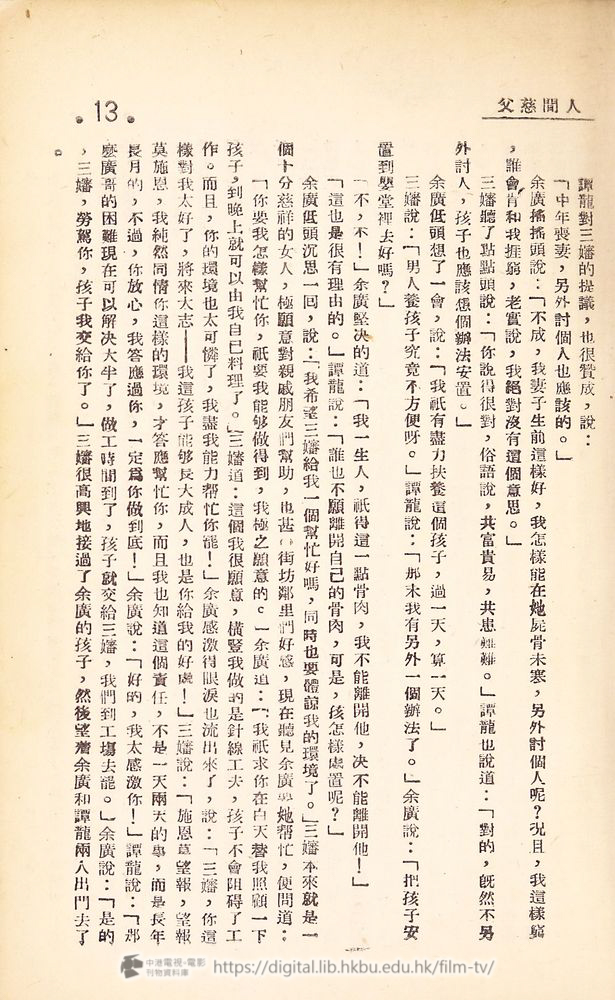 人間慈父
• 13 •
譚龍對三嬸的提議，也很贊成，說：
「中年喪妻，另外討個人也應該的。」
余廣搖搖頭說：「不成，我妻子生前這樣好，我怎樣能在她屍骨未寒，另外討個人呢？況且，我這樣窮
，誰會肯和我捱窮，老實說，我絕對沒有這個意思。」
三嬸聽了點點頭說：「你說得很對，俗語說，共富貴易，共患難難。」譚龍也說道：「對的，既然不另
外討人，孩子也應該想個辦法安置。」
余廣低頭想了一會，說：「我祇有盡力扶養這個孩子，過一天，算一天。」
三嬸說：「男人養孩子究竟不方便呀。」譚龍說：「那末我有另外一個辦法了。」余廣說：「把孩子安
置到嬰堂裡去好嗎？」
「不，不！」余廣堅决的道：「我一生人，祇得這一點骨肉，我不能離開他，决不能離開他！」
「這也是很有理由的。」譚龍說：「誰也不願離開自己的骨肉，可是，孩怎樣處置呢？」
余廣低頭沉思一回，說：「我希望三嬸給我一個幫忙好嗎，同時也要體諒我的環境了。」三嬸本來就是一
個十分慈祥的女人，極願意對親戚朋友們幫助，也甚得街坊鄰里們好感，現在聽見余廣要她幫忙，便問道：
「你要我怎樣幫忙你，祇要我能够做得到，我極之願意的。」余廣道：「我祇求你在白天替我照顧一下
孩子，到晚上就可以由我自己料理了。」三嬸道：這個我很願意，橫豎我做的是針線工夫，孩子不會阻碍了工
作。而且，你的環境也太可憐了，我盡我能力帮忙你罷！」余廣感激得眼淚也流出來了，說：「三嬸，你這
樣對我太好了，將來大志——我這孩子能够長大成人，也是你給我的好處！」三嬸說：「施恩莫望報，望報
莫施恩，我純然同情你這樣的環境，才答應幫忙你，而且我也知道這個責任，不是一天兩天的事，而是長年
長月的，不過，你放心，我答應過你，一定爲你做到底！」余廣說：「好的，我太感激你！」譚龍說：「那
麽廣哥的困難現在可以解决大半了，做工時間到了，孩子就交給三嬸，我們到工塲去罷。」余廣說：「是的
，三嬸，勞駕你，孩子我交給你了。」三嬸很高興地接過了余廣的孩子，然後望着余廣和譚龍兩人出門去了
。
中港電視·電影
刊物資料庫
https://digital.lib.hkbu.edu.hk/film-tv/